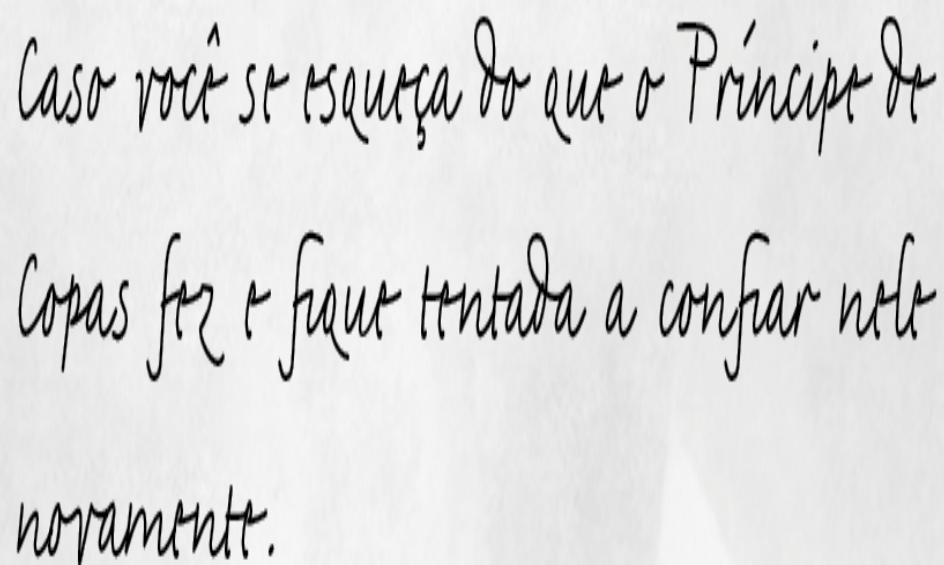 Caso você se esqueça do que o Príncipe de
Copas fez e fique tentada a confiar nele
novamente.